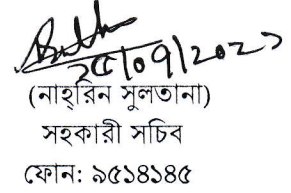 ২৫/০৭/২০২১
(নাহ্‌রিন সুলতানা)
সহকারী সচিব
ফোন: ৯৫১৪১৪৫